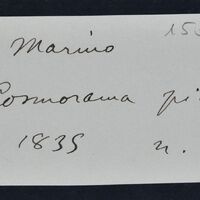 Marino
Cosmorama pi
1835 n.